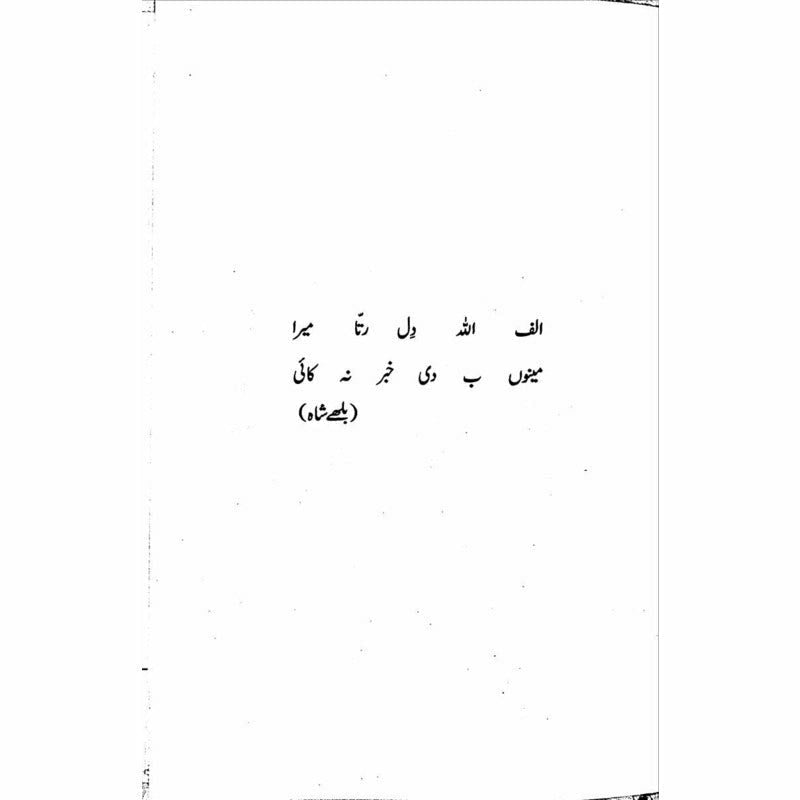 الف اللہ دِل رتّا میرا
مینوں ب دی خبر نہ کائی
(بلھے شاہ)